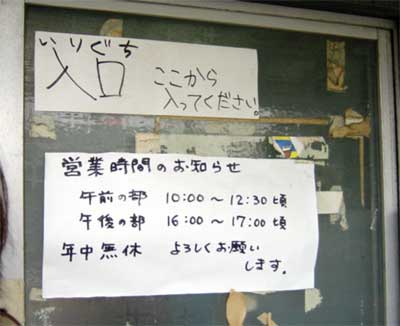 いりぐち
入口 ここから
入ってください。
営業時間のお知らせ
午前の部 10:00～12:30頃
午後の部 16:00～17:00頃
年中無休 よろしくお願い
します。